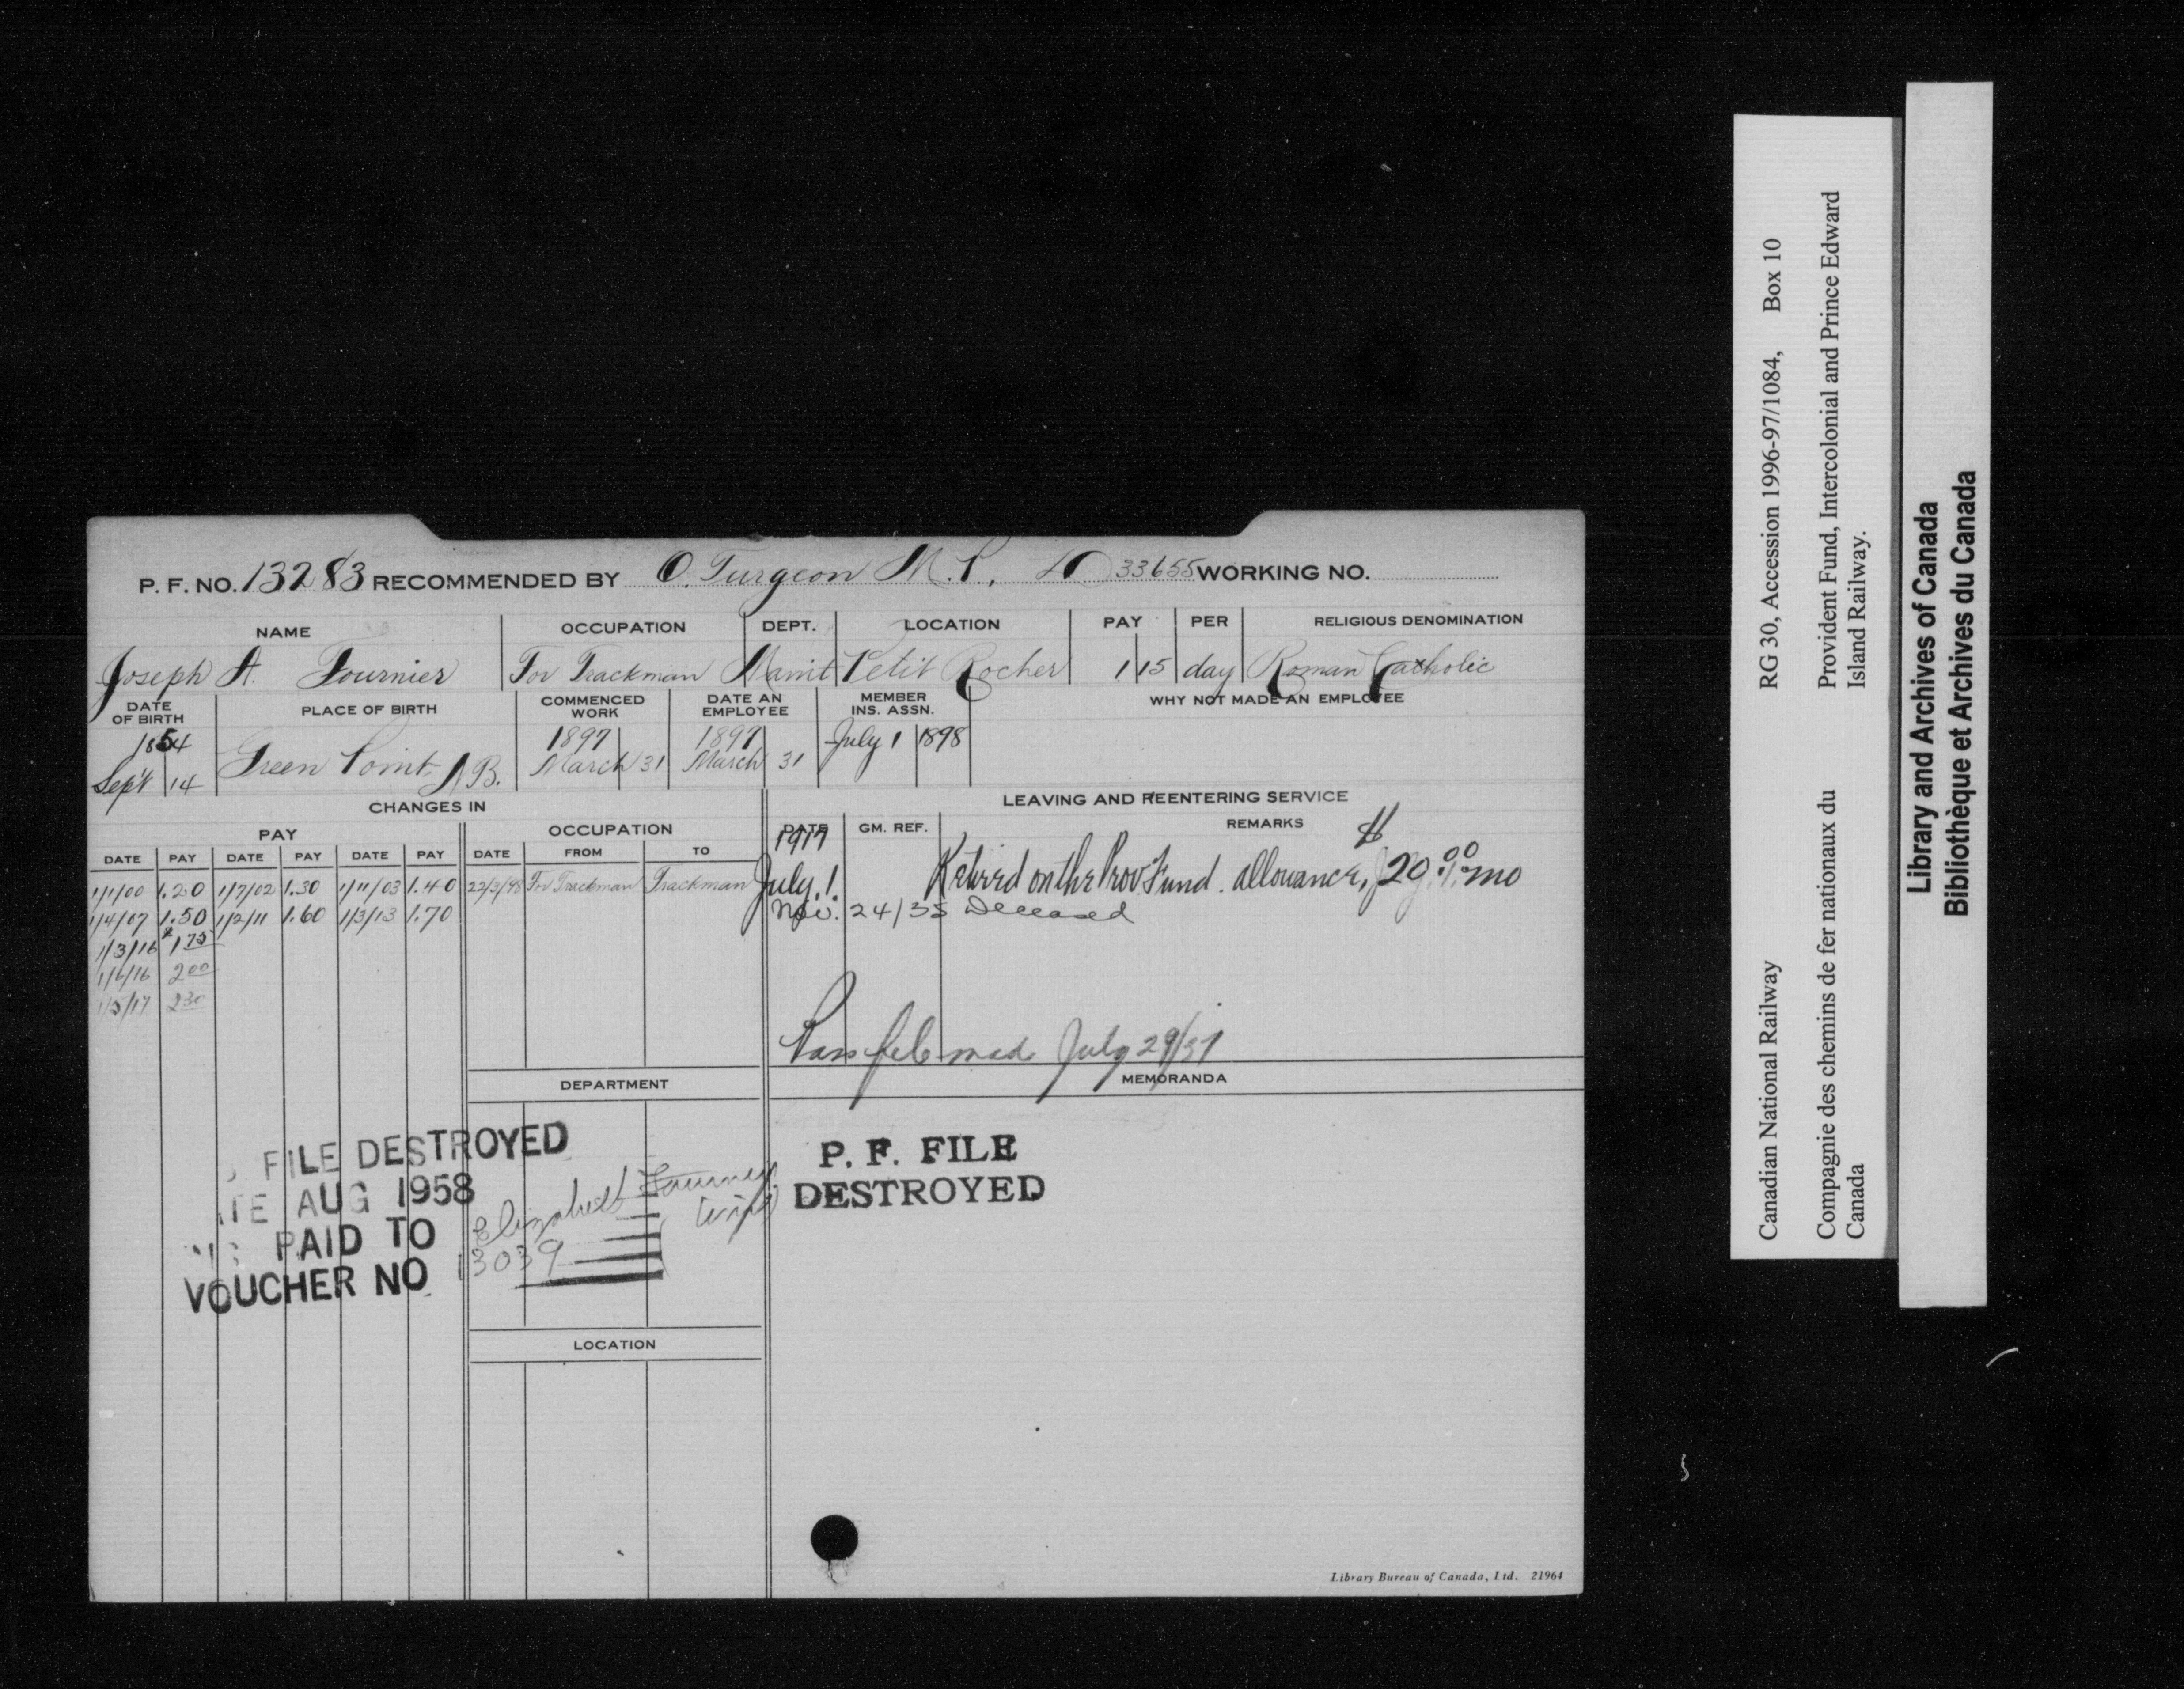 P. F. NO. 13283 RECOMMENDED BY O. Turgeon M.P. 33655 WORKING NO.
NAME OCCUPATION DEPT. LOCATION PAY PER RELIGIOUS DENOMINATION
Joseph A. Fournier For Trackman Maint Petit Rocher 1 15 day Roman Catholic
DATE OF BIRTH PLACE OF BIRTH COMMENCED WORK DATE AN EMPLOYEE MEMBER INS. ASSN. WHY NOT MADE AN EMPLOYEE
1854 1897 1897 July 1 1898
Sept 14 Green Point, N B. March 31 March 31
CHANGES IN LEAVING AND REENTERING SERVICE
PAY OCCUPATION DATE GM. REF. REMARKS
DATE PAY DATE PAY DATE PAY DATE FROM TO 1917
1/1/00 1.20 1/7/02 1.30 1/11/03 1.40 22/3/98 For Trackman Trackman July 1 Retired on the Prov Fund. allowance, $20.00 mo
1/4/07 1.50 1/2/11 1.60 1/3/13 1.70 Nov. 24/35 Deceased
1/3/16 1 75
1/6/16 2 00
1/5/17 2 30
Pass file made July 29/37
DEPARTMENT MEMORANDA
FILE DESTROYED
AUG 1958
PAID TO Elizabeth Fournier
VOUCHER NO 13039
P. F. FILE
DESTROYED
LOCATION
Library Bureau of Canada, Ltd. 21964
Canadian National Railway RG 30, Accession 1996-97/1084, Box 10
Compagnie des chemins de fer nationaux du Canada Provident Fund, Intercolonial and Prince Edward Island Railway.
Library and Archives of Canada
Bibliothèque et Archives du Canada